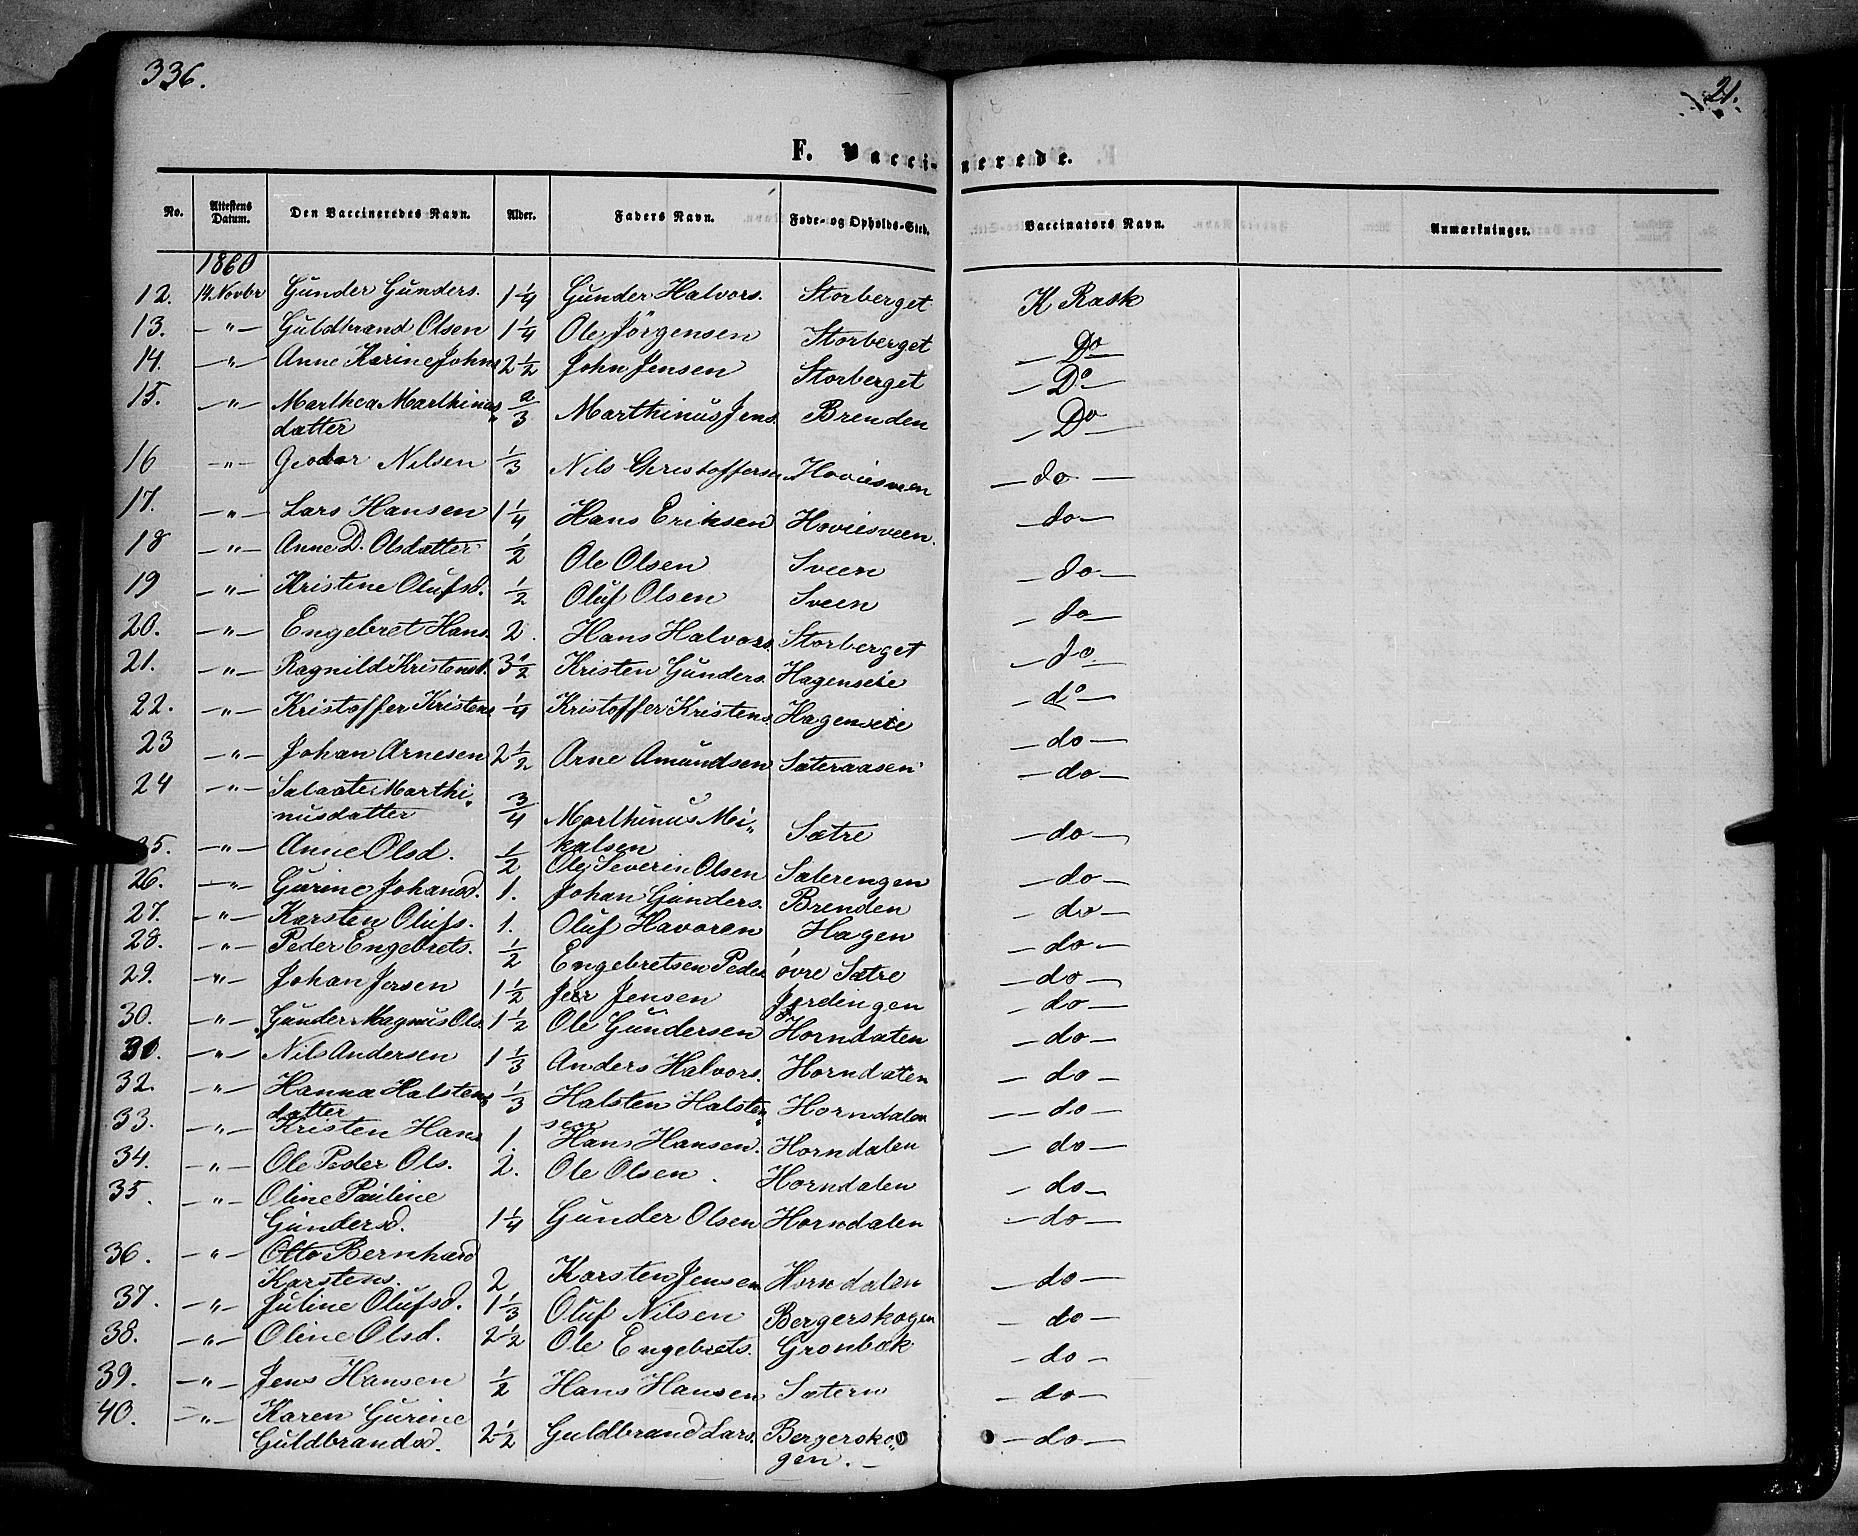 336.
21.
F. Vaccinerede.
No. Attestens Datum. Den Vaccineredes Navn. Alder. Faders Navn. Føde- og Opholds-Sted. Vaccinators Navn. Anmærkninger.
1860
12. 14 Novbr Gunder Gunders. 1 1/4 Gunder Halvors. Storberget K Rask
13. -"- Guldbrand Olsen 1 1/4 Ole Jörgensen Storberget - Do -
14. -"- Anne Karine Johns 2 1/2 John Jensen Storberget - Do -
15. -"- Marthea Marthinus 2/3 Marthinus Jens. Brenden - Do -
datter
16 -"- Nilsen 1/3 Nils Christoffersen Hoviesveen - do -
17. -"- Lars Hansen 1 1/4 Hans Eriksen Hoviesveen. - do -
18 -"- Anne D. Olsdatter 1/2 Ole Olsen Sveen - do -
19 -"- Kristine Olufsd. 1/2 Oluf Olsen Sveen - do -
20. -"- Engebret Hans. 2. Hans Halvors. Storberget - do -
21. -"- Ragnild Kristensd. 3 1/2 Kristen Gunders. Hagenseie - do -
22. -"- Kristoffer Kristens 1/4 Kristoffer Kristens. Hagenseie - do -
23 -"- Johan Arnesen 2 1/2 Arne Amundsen Sæteraasen - do -
24 -"- Marthi-
nusdatter 3/4 Marthinus Mi- Sætre - do -
kalsen
25. -"- Anne Olsd. 1/2 Ole Severin Olsen Sæterengen - do -
26. -"- Gurine Johansd. 1. Johan Gunders. Brenden - do -
27. -"- Karsten Olufs. 1. Oluf Havoren Hagen - do -
28. -"- Peder Engebrets. 1/2 Engebretsen Peder øvre Sætre - do -
29. -"- Johan Jensen 1 1/2 Jensen - do -
30. -"- Gunder Magnus Ols. 1 1/2 Ole Gundersen Horndalen - do -
31. -"- Nils Andersen 1 1/3 Anders Halvors. Horndalen - do -
32. -"- Hanna Halstens 1/3 Halsten Halsten- Horndalen - do -
datter sen
33. -"- Kristen Hans 1. Hans Hansen. Horndalen - do -
34. -"- Ole Peder Ols. 2. Ole Olsen. Horndalen - do -
35. -"- Oline Pauline
Gundersd. 1 1/4 Gunder Olsen Horndalen - do -
36. -"- Otto Bernhard
Karstens. 2 Karsten Jensen Horndalen - do -
37. -"- Juline Olufsd. 1 1/3 Oluf Nilsen Bergerskogen - do -
38. -"- Oline Olsd. 2 1/2 Ole Engebrets. Gronbæk - do -
39. -"- Jens Hansen 1/2 Hans Hansen Sætern - do -
40. -"- Karen Gurine
Guldbrandsd. 2 1/2 Guldbrand Lars. Bergersko- - do -
gen. -